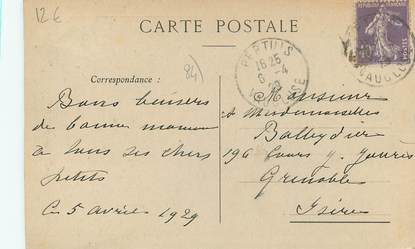 12 €
CARTE POSTALE
Correspondance :
84
PERTUIS
16 25
6 - 4
VAUCLUSE
VAUCLUSE
Bons baisers
de bonne maman
à tous ses chers
petits
Ce 5 avril 1929
Monsieur
et Mesdemoiselles
196 Cours J. Jaurès
Grenoble
Isère